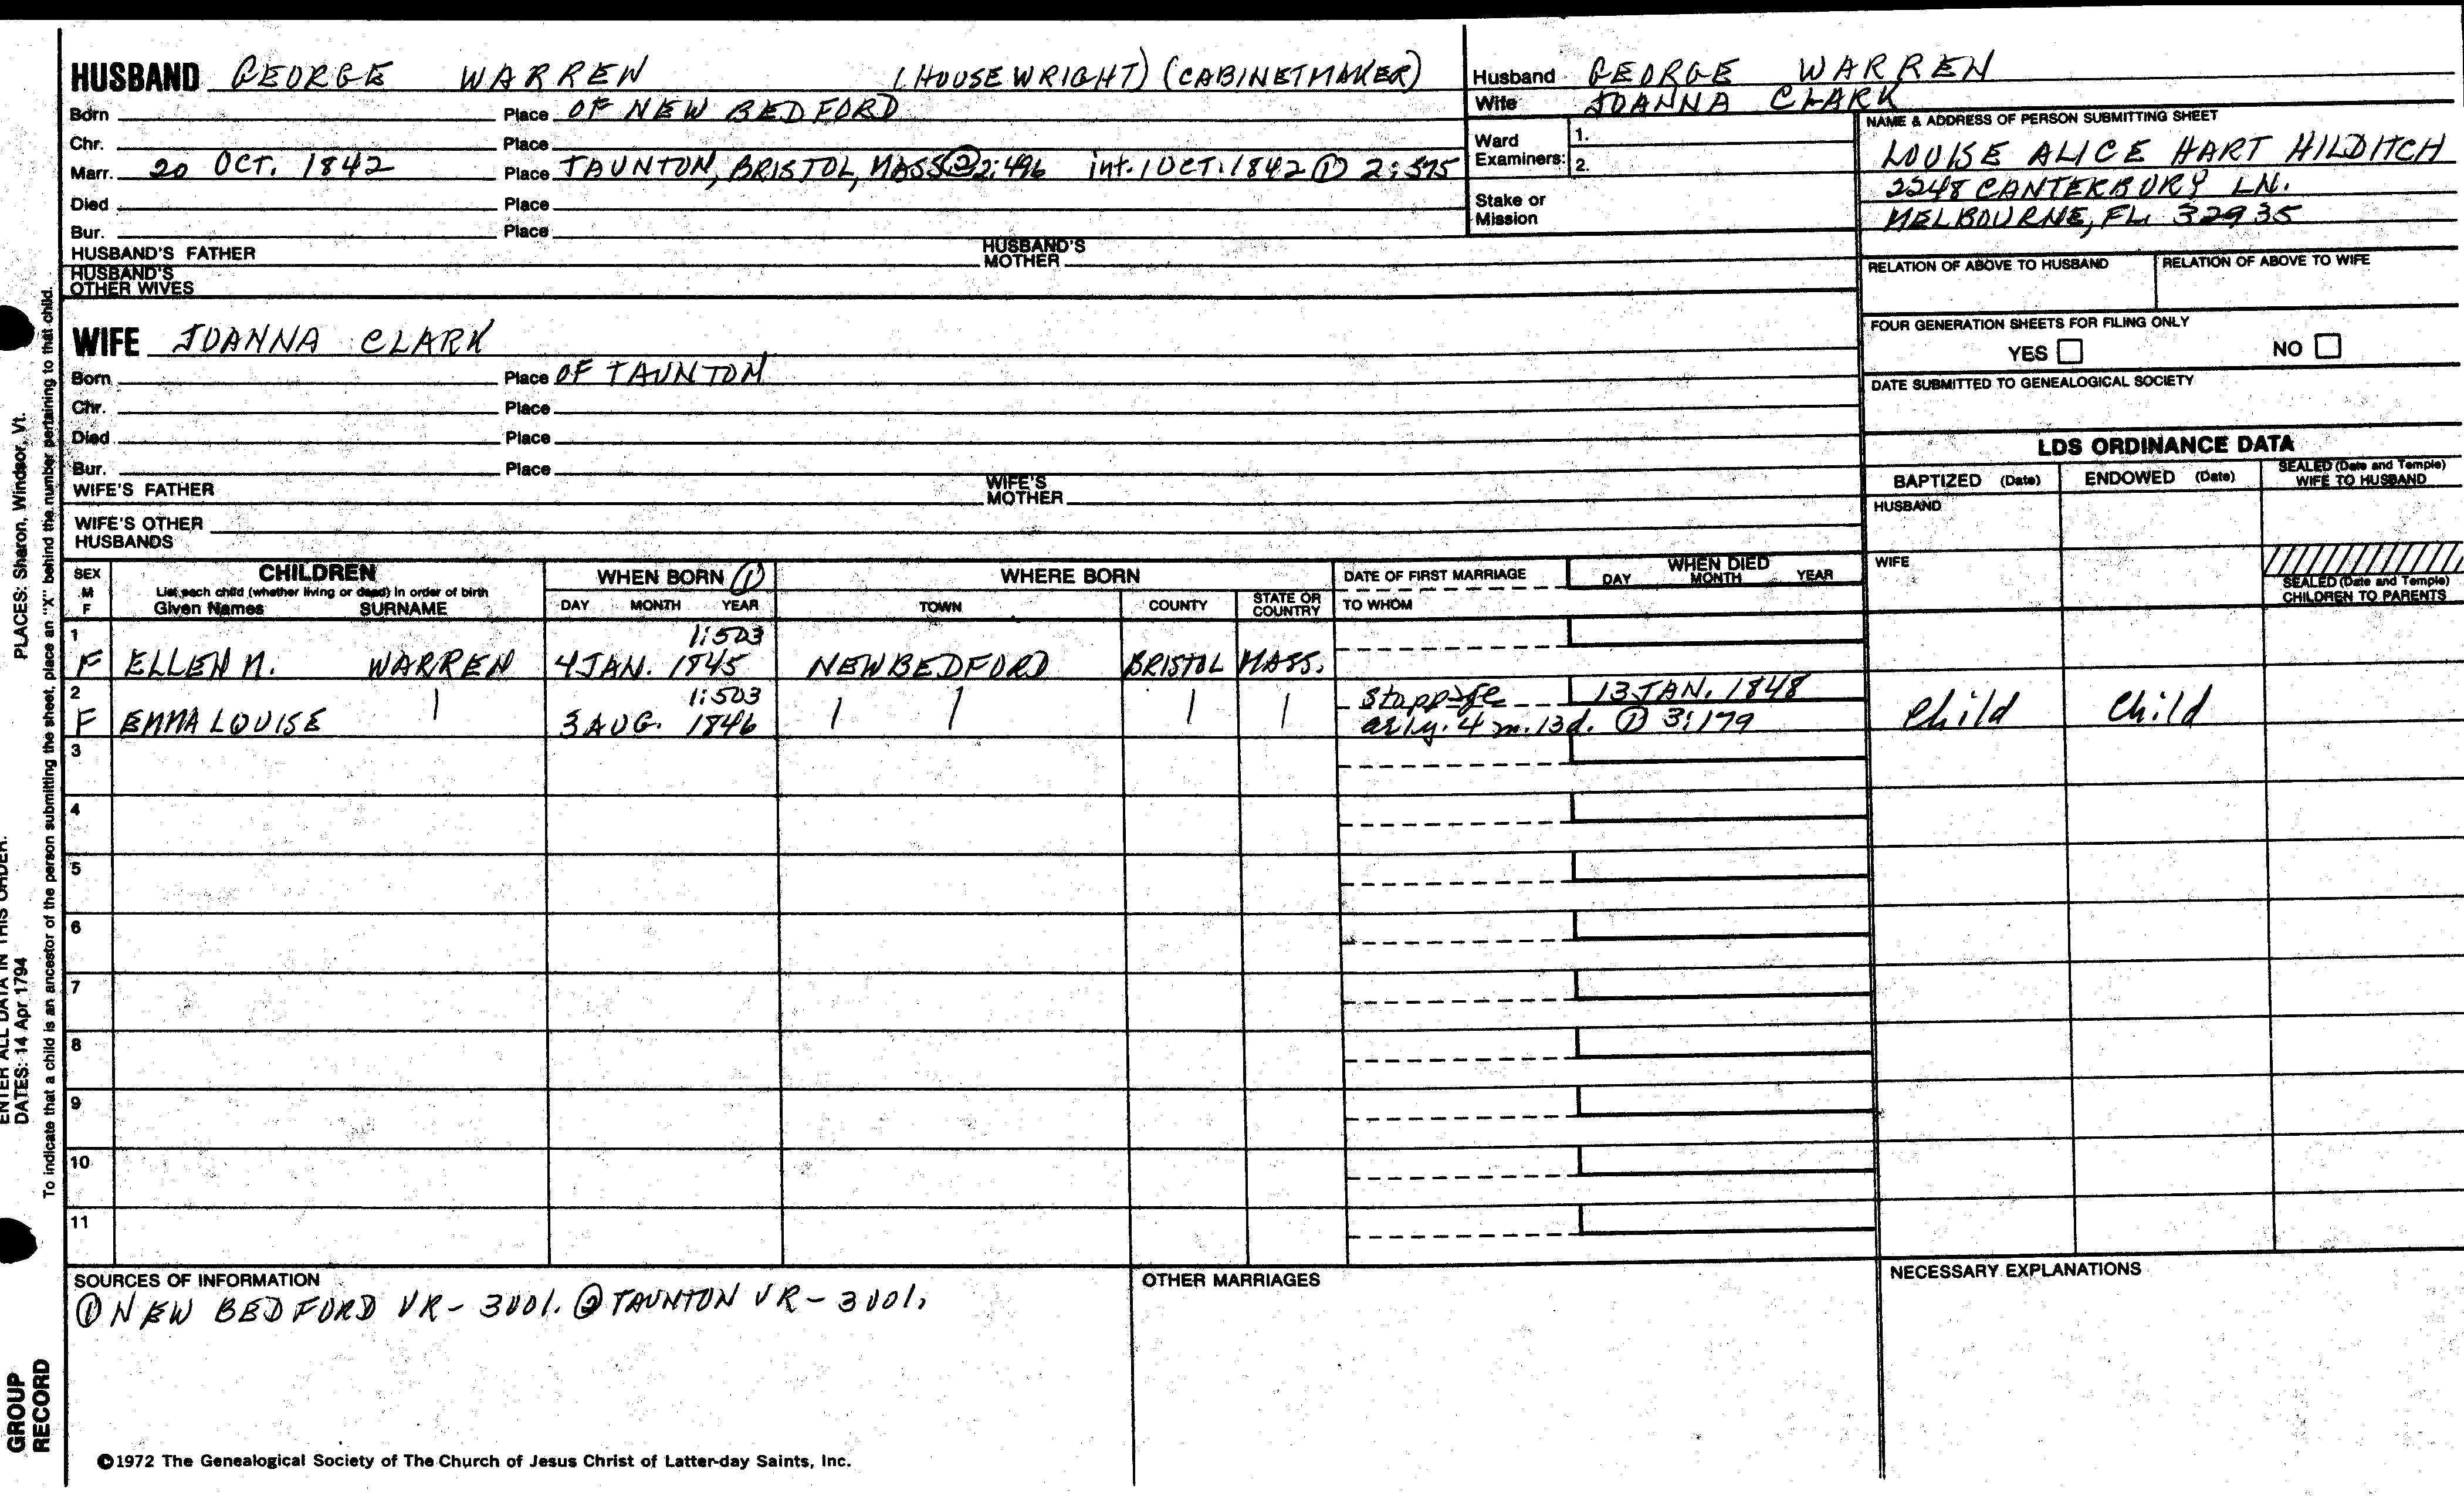 HUSBAND GEORGE WARREN (HOUSEWRIGHT) (CABINETMAKER)
Born Place OF NEW BEDFORD
Chr. Place
Marr. 20 OCT. 1842 Place TAUNTON, BRISTOL, MASS ② 2:496 int. 1 OCT. 1842 ① 2:575
Died Place
Bur. Place
HUSBAND'S FATHER HUSBAND'S MOTHER
HUSBAND'S OTHER WIVES
Husband GEORGE WARREN
Wife JOANNA CLARK
Ward Examiners: 1.
2.
Stake or Mission
NAME & ADDRESS OF PERSON SUBMITTING SHEET
LOUISE ALICE HART HILDITCH
2248 CANTERBURY LN.
MELBOURNE, FL. 32935
RELATION OF ABOVE TO HUSBAND RELATION OF ABOVE TO WIFE
FOUR GENERATION SHEETS FOR FILING ONLY
YES NO
DATE SUBMITTED TO GENEALOGICAL SOCIETY
WIFE JOANNA CLARK
Born Place OF TAUNTON
Chr. Place
Died Place
Bur. Place
WIFE'S FATHER WIFE'S MOTHER
WIFE'S OTHER HUSBANDS
LDS ORDINANCE DATA
BAPTIZED (Date) ENDOWED (Date) SEALED (Date and Temple) WIFE TO HUSBAND
HUSBAND
WIFE
SEALED (Date and Temple) CHILDREN TO PARENTS
SEX M F
CHILDREN
List each child (whether living or dead) in order of birth
Given Names SURNAME
WHEN BORN ①
DAY MONTH YEAR
WHERE BORN
TOWN COUNTY STATE OR COUNTRY
DATE OF FIRST MARRIAGE
TO WHOM
WHEN DIED
DAY MONTH YEAR
1 1:503
F ELLEN M. WARREN 4 JAN. 1845 NEW BEDFORD BRISTOL MASS.
2 1:503 Stoppage 13 JAN. 1848
F EMMA LOUISE 3 AUG. 1846 ae 1 y. 4 m. 13 d. ① 3:179 Child Child
3
4
5
6
7
8
9
10
11
SOURCES OF INFORMATION
① NEW BEDFORD VR - 3 vol. ② TAUNTON VR - 3 vol.
OTHER MARRIAGES
NECESSARY EXPLANATIONS
©1972 The Genealogical Society of The Church of Jesus Christ of Latter-day Saints, Inc.
ENTER ALL DATA IN THIS ORDER:
DATES: 14 Apr 1794 PLACES: Sharon, Windsor, Vt.
To indicate that a child is an ancestor of the person submitting the sheet, place an "X" behind the number pertaining to that child.
GROUP RECORD